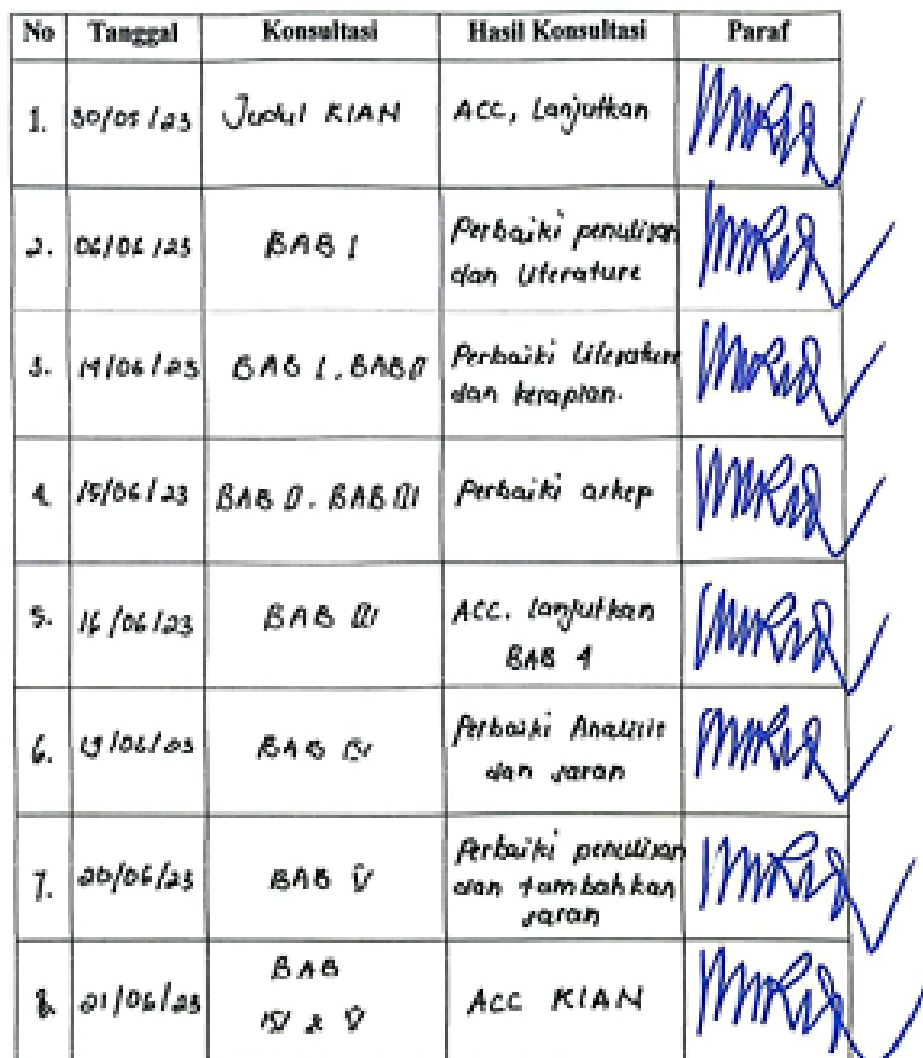 No Tanggal Konsultasi Hasil Konsultasi Paraf
1. 30/05/23 Judul KIAN ACC, Lanjutkan
2. 06/06/23 BAB I Perbaiki penulisan
dan Literature
3. 14/06/23 BAB I, BAB II Perbaiki Literature
dan kerapian.
4. 15/06/23 BAB II, BAB III Perbaiki askep
5. 16/06/23 BAB III ACC. Lanjutkan
BAB 4
6. 19/06/23 BAB IV Perbaiki Analisis
dan saran
7. 20/06/23 BAB V Perbaiki penulisan
dan tambahkan
saran
8. 21/06/23 BAB
IV & V ACC KIAN